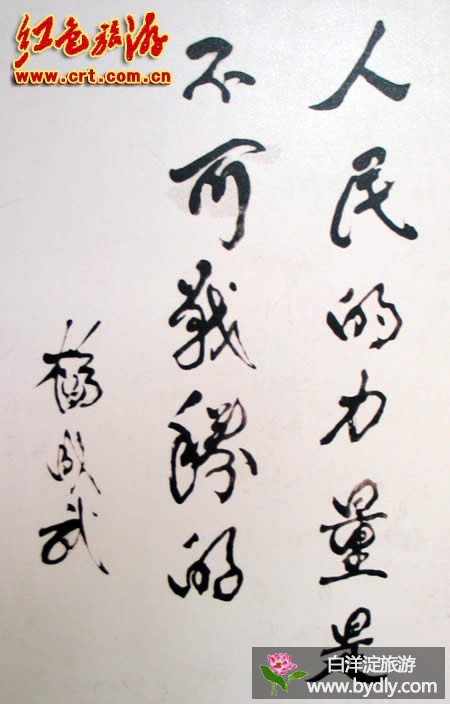 红色旅游
www.crt.com.cn
人民的力量是
不可戰勝的
楊成武
白洋淀旅游
www.bydly.com